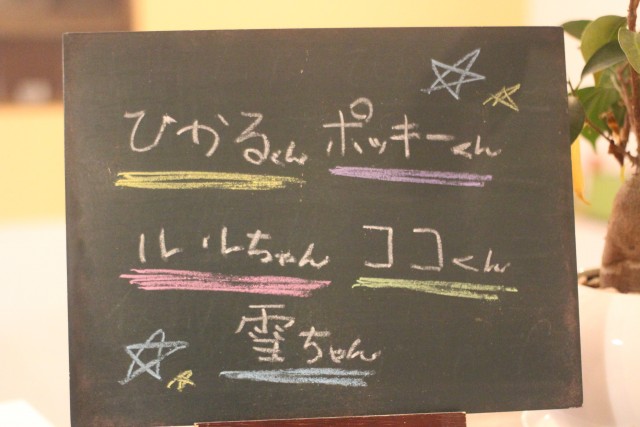 ひかるくん ポッキーくん
ルルちゃん ココくん
雪ちゃん